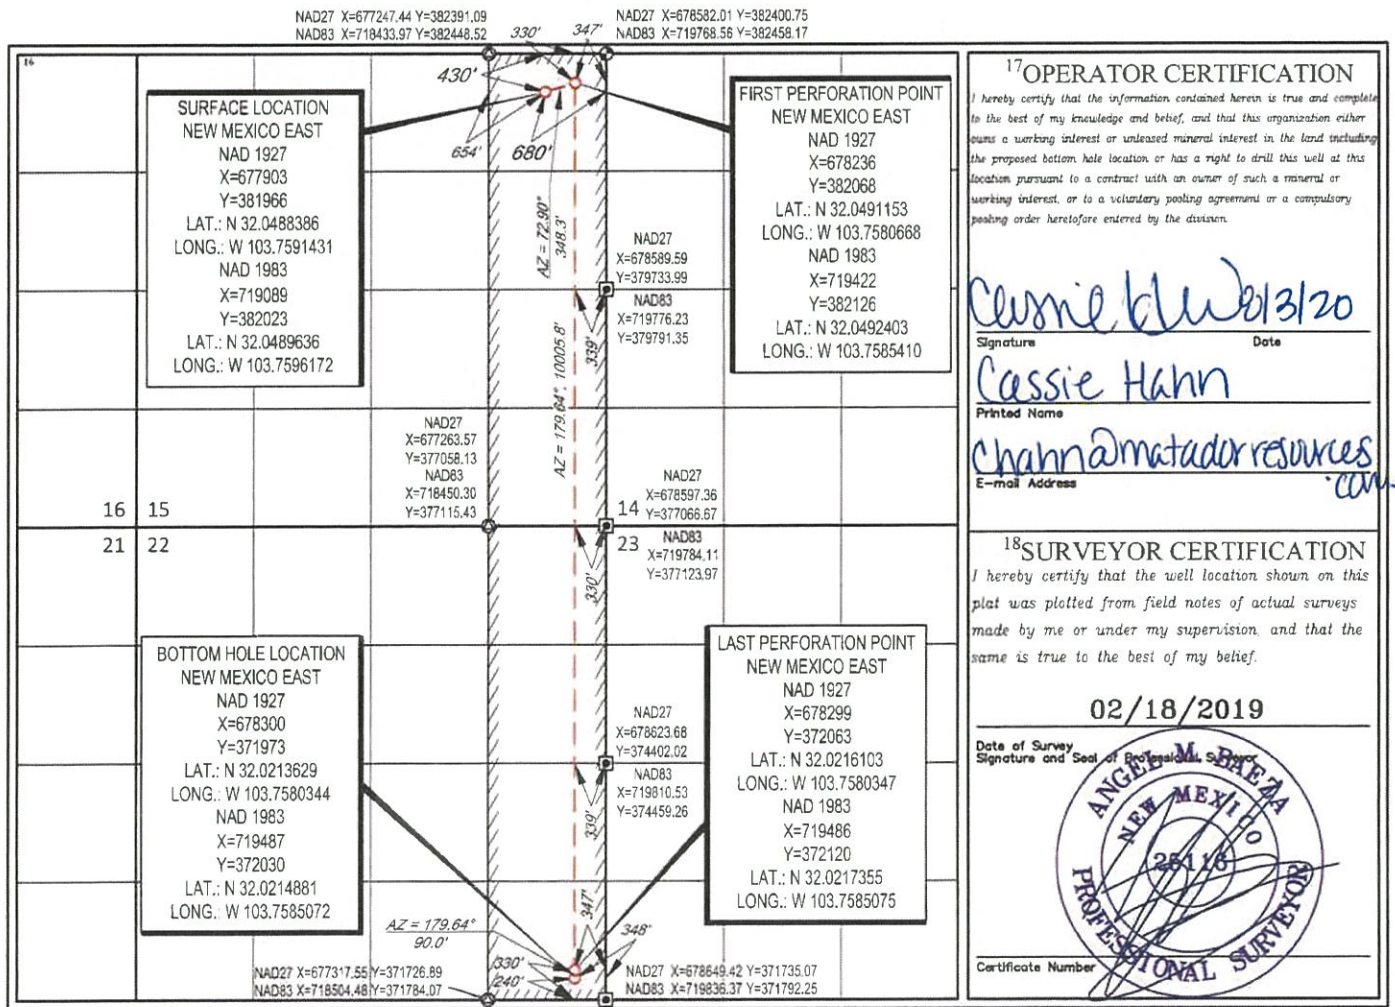 NAD27 X=677247.44 Y=382391.09
NAD83 X=718433.97 Y=382448.52
330'
347'
NAD27 X=678582.01 Y=382400.75
NAD83 X=719768.56 Y=382458.17
16
430'
654'
680'
SURFACE LOCATION
NEW MEXICO EAST
NAD 1927
X=677903
Y=381966
LAT.: N 32.0488386
LONG.: W 103.7591431
NAD 1983
X=719089
Y=382023
LAT.: N 32.0489636
LONG.: W 103.7596172
AZ = 72.90°
348.3'
FIRST PERFORATION POINT
NEW MEXICO EAST
NAD 1927
X=678236
Y=382068
LAT.: N 32.0491153
LONG.: W 103.7580668
NAD 1983
X=719422
Y=382126
LAT.: N 32.0492403
LONG.: W 103.7585410
NAD27
X=678589.59
Y=379733.99
NAD83
X=719776.23
Y=379791.35
339'
AZ = 179.64°, 10005.8'
NAD27
X=677263.57
Y=377058.13
NAD83
X=718450.30
Y=377115.43
NAD27
X=678597.36
Y=377066.67
NAD83
X=719784.11
Y=377123.97
16 15
14
21 22
23
330'
BOTTOM HOLE LOCATION
NEW MEXICO EAST
NAD 1927
X=678300
Y=371973
LAT.: N 32.0213629
LONG.: W 103.7580344
NAD 1983
X=719487
Y=372030
LAT.: N 32.0214881
LONG.: W 103.7585072
NAD27
X=678623.68
Y=374402.02
NAD83
X=719810.53
Y=374459.26
339'
LAST PERFORATION POINT
NEW MEXICO EAST
NAD 1927
X=678299
Y=372063
LAT.: N 32.0216103
LONG.: W 103.7580347
NAD 1983
X=719486
Y=372120
LAT.: N 32.0217355
LONG.: W 103.7585075
AZ = 179.64°
90.0'
347'
348'
330'
240'
NAD27 X=677317.55 Y=371726.89
NAD83 X=718504.48 Y=371784.07
NAD27 X=678649.42 Y=371735.07
NAD83 X=719836.37 Y=371792.25
17 OPERATOR CERTIFICATION
I hereby certify that the information contained herein is true and complete
to the best of my knowledge and belief, and that this organization either
owns a working interest or unleased mineral interest in the land including
the proposed bottom hole location or has a right to drill this well at this
location pursuant to a contract with an owner of such a mineral or
working interest, or to a voluntary pooling agreement or a compulsory
pooling order heretofore entered by the division.
8/3/20
Signature Date
Cassie Hahn
Printed Name
chahn@matadorresources
.com
E-mail Address
18 SURVEYOR CERTIFICATION
I hereby certify that the well location shown on this
plat was plotted from field notes of actual surveys
made by me or under my supervision, and that the
same is true to the best of my belief.
02/18/2019
Date of Survey
Signature and Seal of Professional Surveyor
ANGEL M. BAEZA
NEW MEXICO
25116
PROFESSIONAL SURVEYOR
Certificate Number